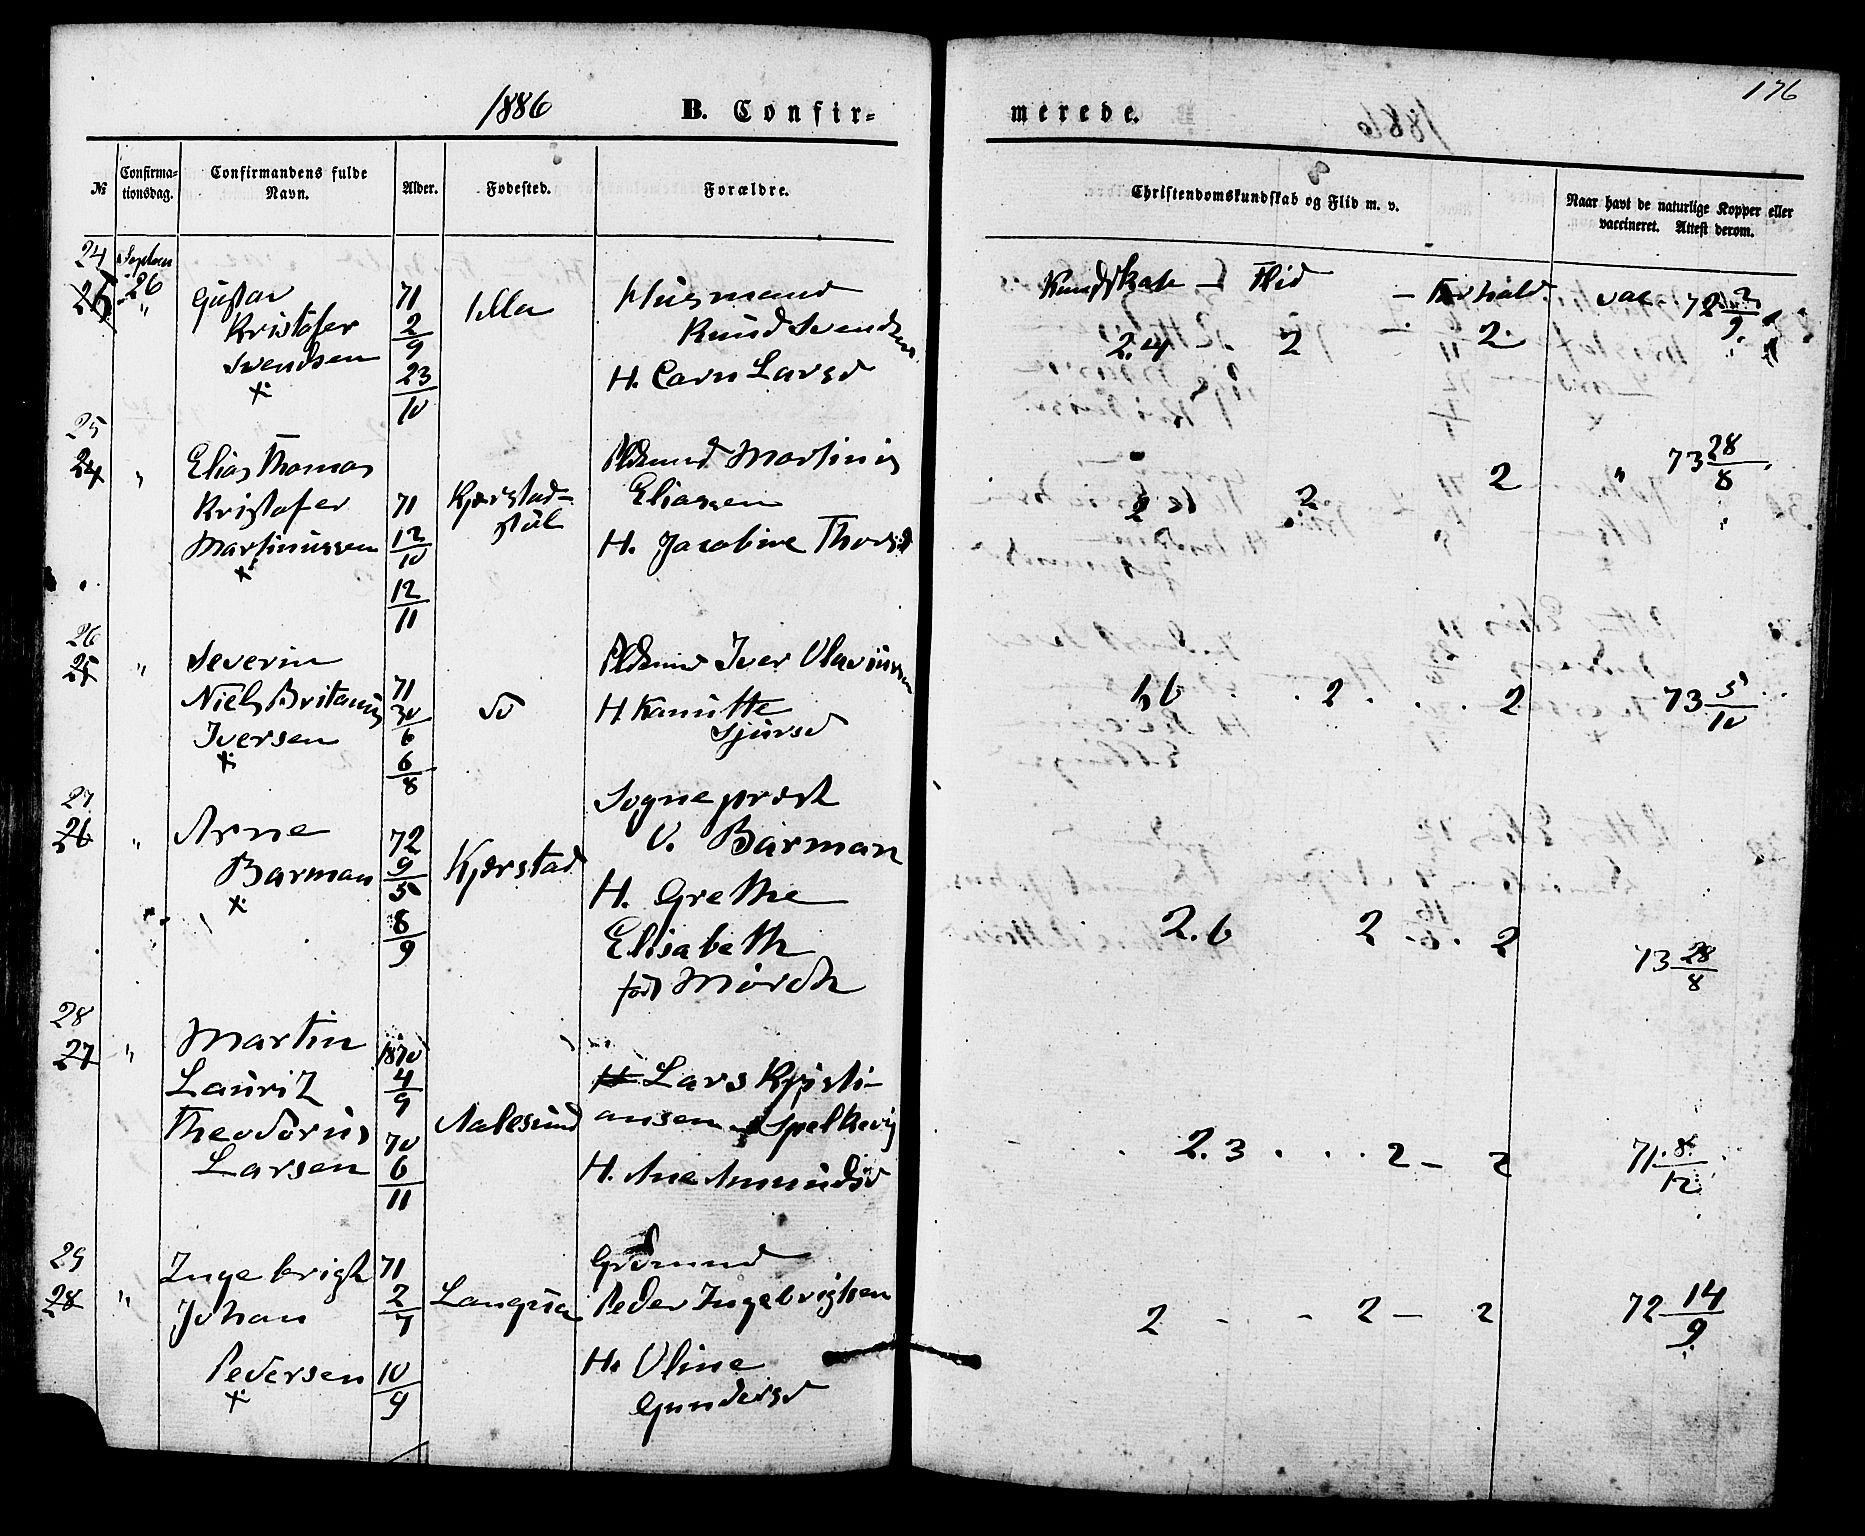 176
1886 B. Confir=
merede.
№ Confirma-tionsdag. Confirmandens fulde Navn. Alder. Fødested. Forældre.
Christendomskundskab og Flid m. v. Naar havt de naturlige Kopper eller vaccineret. Attest derom.
24 Septem
23 26 " Gustav 71 Ulla Husmand Kundskab – Flid – Forhold. vac 72 2/9
Kristofer 2/9 Knud Svendsen 2.4 2 – 2.
Svendsen 23/10 H. Larsd
x
25
24 " Elias Thomas Pldsmd Martinus 2 " 73 28/8
Kristofer 71 Kjærstad- Eliassen 2 2
Martinussen 12/10 støl H. Jacobine Thorsd
x 12/11
26
25 " Severin Pldsmd Iver Olavsen
Niels Britanus 71 do H Kanutte 2 2 73 5/10
Iversen 30/6 Sjursd
x 6/8
27 Sogneprest
26 " Arne 72 V. Barman
Barman 9/5 Kjærstad H. Grethe
x 8/9 Elisabeth 2.6 2 2 73 28/8
født Mørch
28
27 " Martin 1870
Lauritz 4/9 H Lars Kristi-
Theodorus 70 Aalesund ansen Spelkevig 2.3 2 – 2 71 8/12
Larsen 6/11 H. Ane Amundsd
29 Ingebrigt 71 Grdmand
28 " Johan 2/7 Peder Ingebrigtsen 2 – – 2 – 2 72 14/9
Pedersen 10/9 H. Oline
x Gundersd